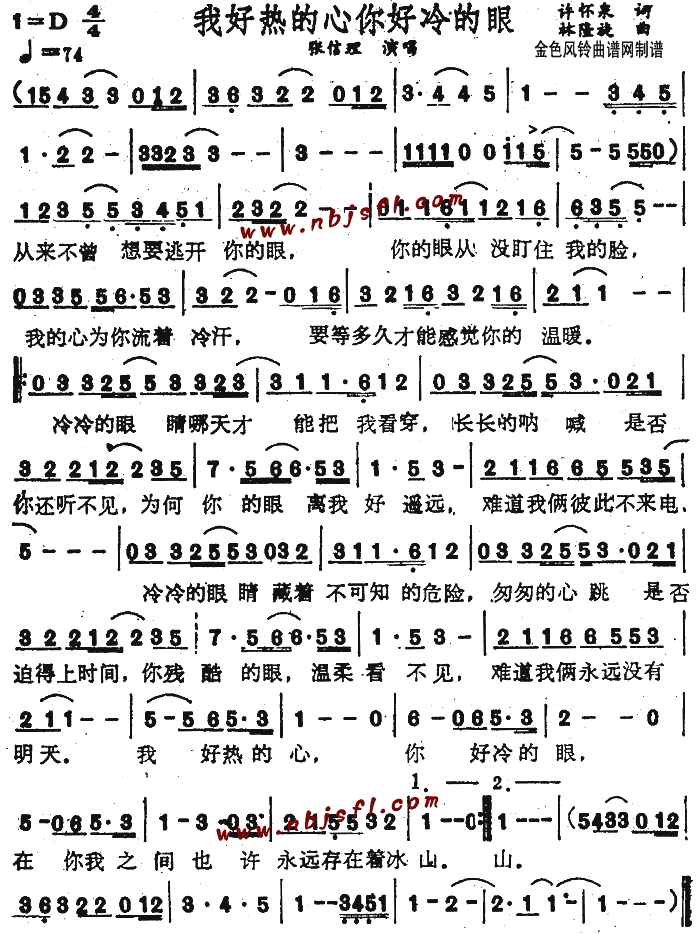 1=D 4/4 我好热的心你好冷的眼 许怀泉 词
♩=74 张信理 演唱 林隆旋 曲
金色风铃曲谱网制谱
(15433012 | 363322 012 | 3·445 | 1-- 345 |
1·22- | 33233-- | 3--- | 11110 0 i15 | 5-5 550) |
12355345 1 | 2322-- | 01161121 6 | 6355-- |
www.nbjsfl.com
从来不曾 想要逃开 你的眼， 你的眼从 没盯住 我的脸，
03355 56·53 | 322-016 | 32163216 | 211-- |
我的心为你流着 冷汗， 要等多久才能感觉你的 温暖。
03325533323 | 311·612 | 0332553·021 |
冷冷的眼 睛哪天才 能把 我看穿， 长长的呐 喊 是否
32212235 | 7·566·53 | 1·53- | 2116655535 |
你还听不见，为何 你 的眼 离我 好 遥远， 难道我俩彼此不来电，
5--- | 0332553032 | 311·612 | 0332553·021 |
冷冷的眼 睛 藏着 不可知 的危险，匆匆的心 跳 是否
32212235 | 7·566·53 | 1·53- | 21166553 |
迫得上时间，你残 酷 的眼，温柔看 不见， 难道我俩永远没有
211-- | 5-565·3 | 1--0 | 6-065·3 | 2--0 |
明天。 我 好热的 心， 你 好冷的 眼，
1. 2.
5-065·3 | 1-3-03· | 22 5532 | 1--0 :| 1-- | (5433012 |
www.nbjsfl.com
在 你我 之 间 也 许 永远存在着冰 山。 山。
36322012 | 3·4·5 | 1--3451 | 1-2- | 2·11·1 | 1---) ||